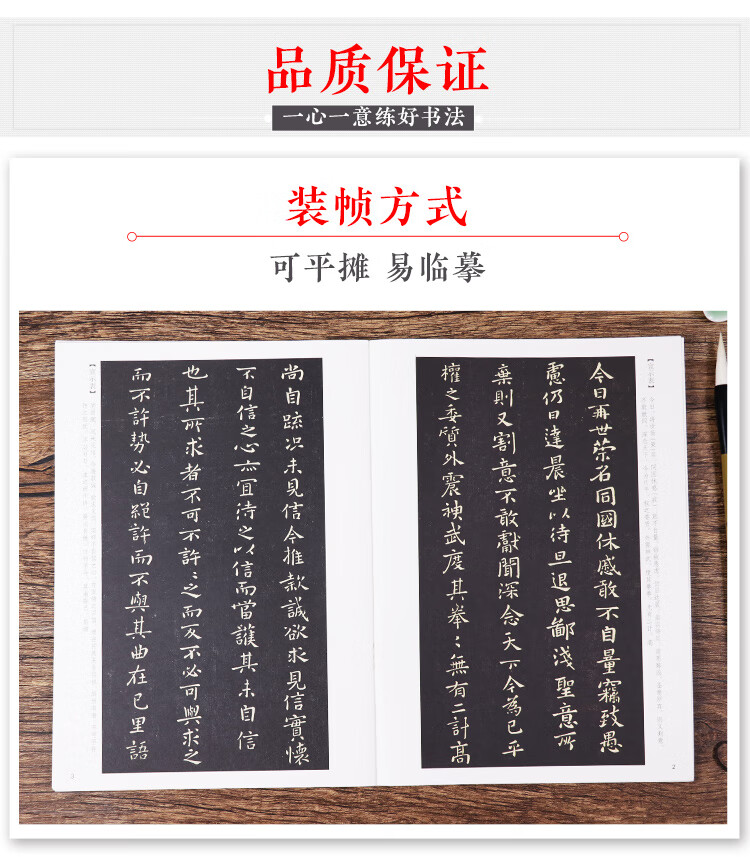 品质保证
一心一意练好书法
装帧方式
可平摊 易临摹
【宣示表】
今日再世榮名同國休慼敢不自量竊致愚
慮仍日達晨坐以待旦退思鄙淺聖意所
棄則又割意不敢獻聞深念天下今為已平
權之委質外震神武度其拳〻無有二計高
2
尚自疏況未見信今推款誠欲求見信實懷
不自信之心亦宜待之以信而當護其未自信
也其所求者不可不許〻之而反不必可與求之
而不許勢必自絕許而不與其曲在己里語
【宣示表】
3